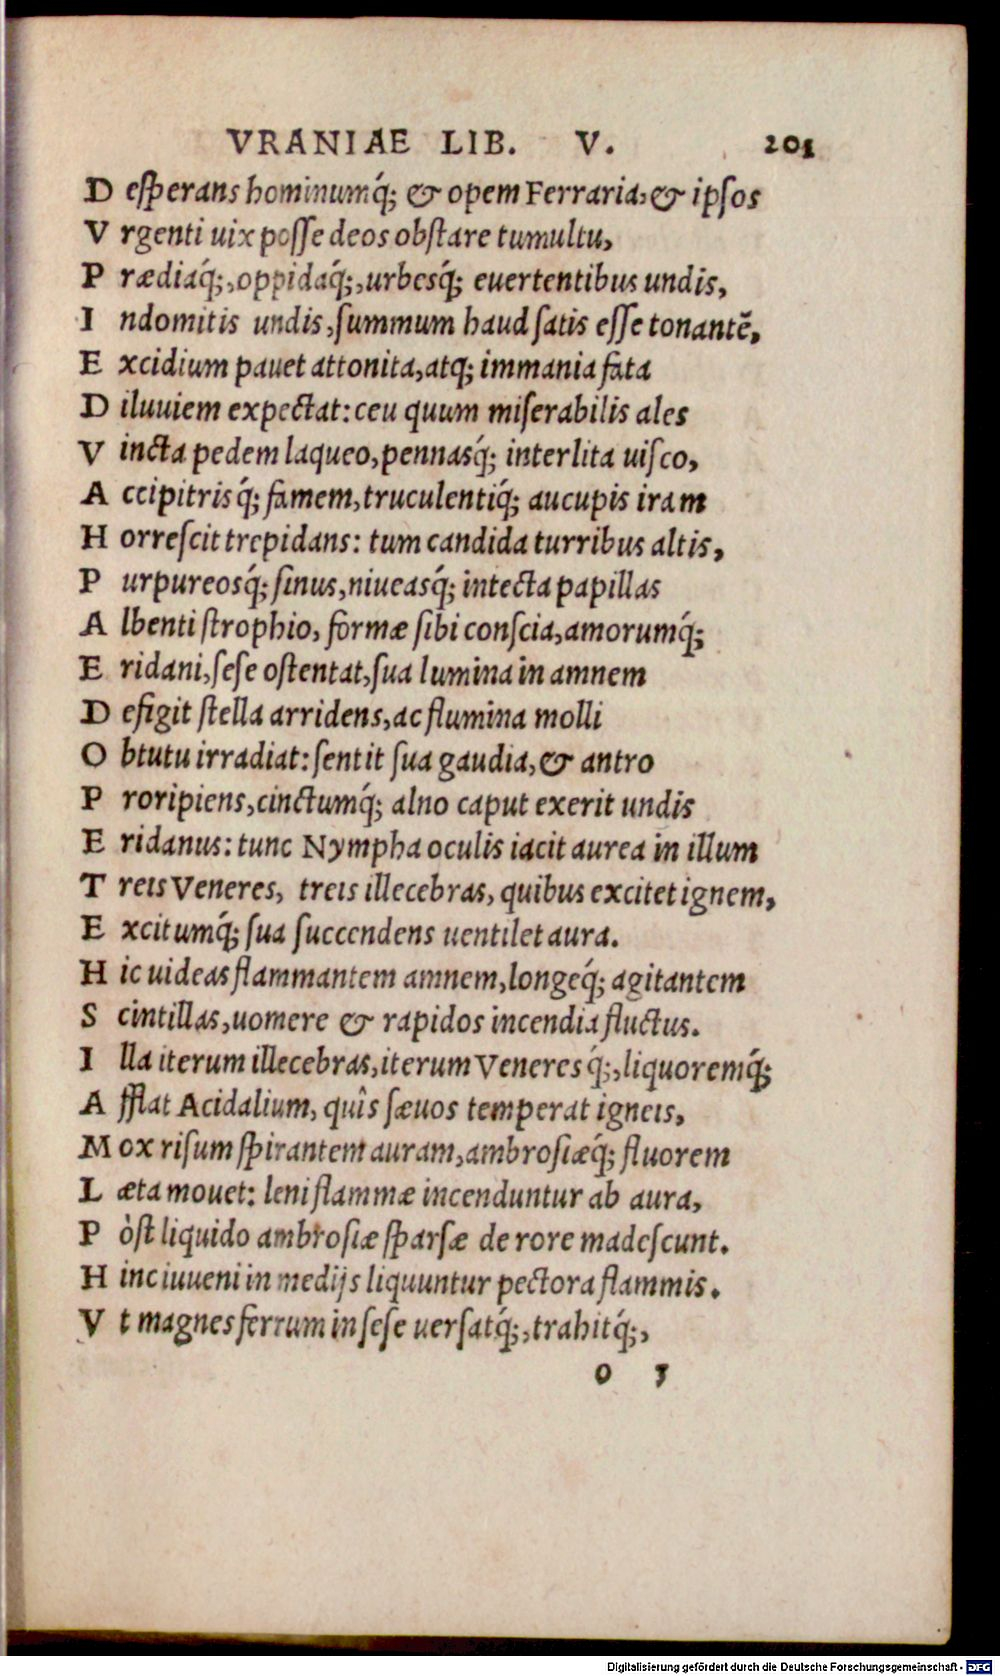 VRANIAE LIB. V. 201
D esperans hominumq́; & opem Ferraria, & ipsos
V rgenti uix posse deos obstare tumultu,
P rædiaq́;, oppidaq́;, urbesq́; euertentibus undis,
I ndomitis undis, summum haud satis esse tonantē,
E xcidium pauet attonita, atq; immania fata
D iluuiem expectat: ceu quum miserabilis ales
V incta pedem laqueo, pennasq́; interlita uisco,
A ccipitrisq́; famem, truculentiq́; aucupis iram
H orrescit trepidans: tum candida turribus altis,
P urpureosq́; sinus, niueasq́; intecta papillas
A lbenti strophio, formæ sibi conscia, amorumq́;
E ridani, sese ostentat, sua lumina in amnem
D efigit stella arridens, ac flumina molli
O btutu irradiat: sentit sua gaudia, & antro
P roripiens, cinctumq́; alno caput exerit undis
E ridanus: tunc Nympha oculis iacit aurea in illum
T reis Veneres, treis illecebras, quibus excitet ignem,
E xcitumq́; sua succendens uentilet aura.
H ic uideas flammantem amnem, longeq́; agitantem
S cintillas, uomere & rapidos incendia fluctus.
I lla iterum illecebras, iterum Veneresq́;, liquoremq́;
A fflat Acidalium, quîs sæuos temperat igneis,
M ox risum spirantem auram, ambrosiæq́; fluorem
L æta mouet: leni flammæ incenduntur ab aura,
P òst liquido ambrosiæ sparsæ de rore madescunt.
H inc iuueni in medijs liquuntur pectora flammis.
V t magnes ferrum in sese uersatq́;, trahitq́;,
o 5
Digitalisierung gefördert durch die Deutsche Forschungsgemeinschaft - DFG